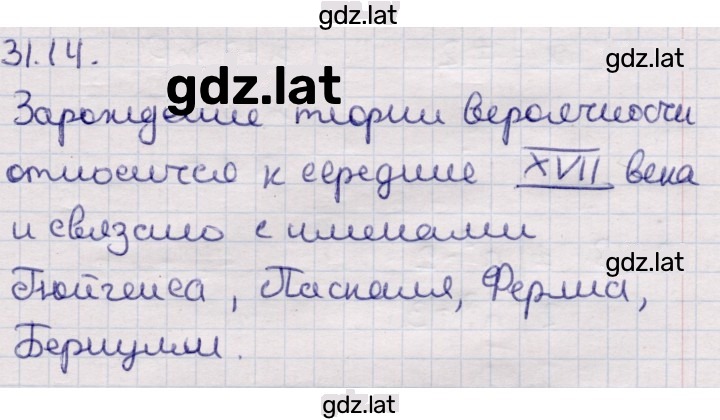 gdz.lat
31.14.
gdz.lat
gdz.lat
Зарождение теории вероятности
относится к середине XVII века
и связано с именами
gdz.lat
Гюйгенса, Паскаля, Ферма,
Бернулли.
gdz.lat